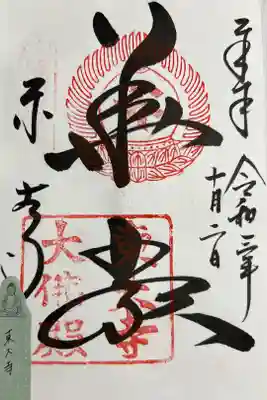 奉拝
令和二年
十月二日
華厳
東大寺
大佛殿
東大寺
東大寺